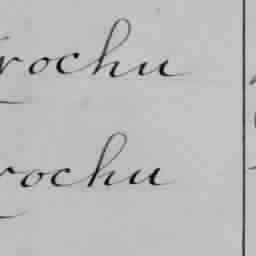 rochu
rochu